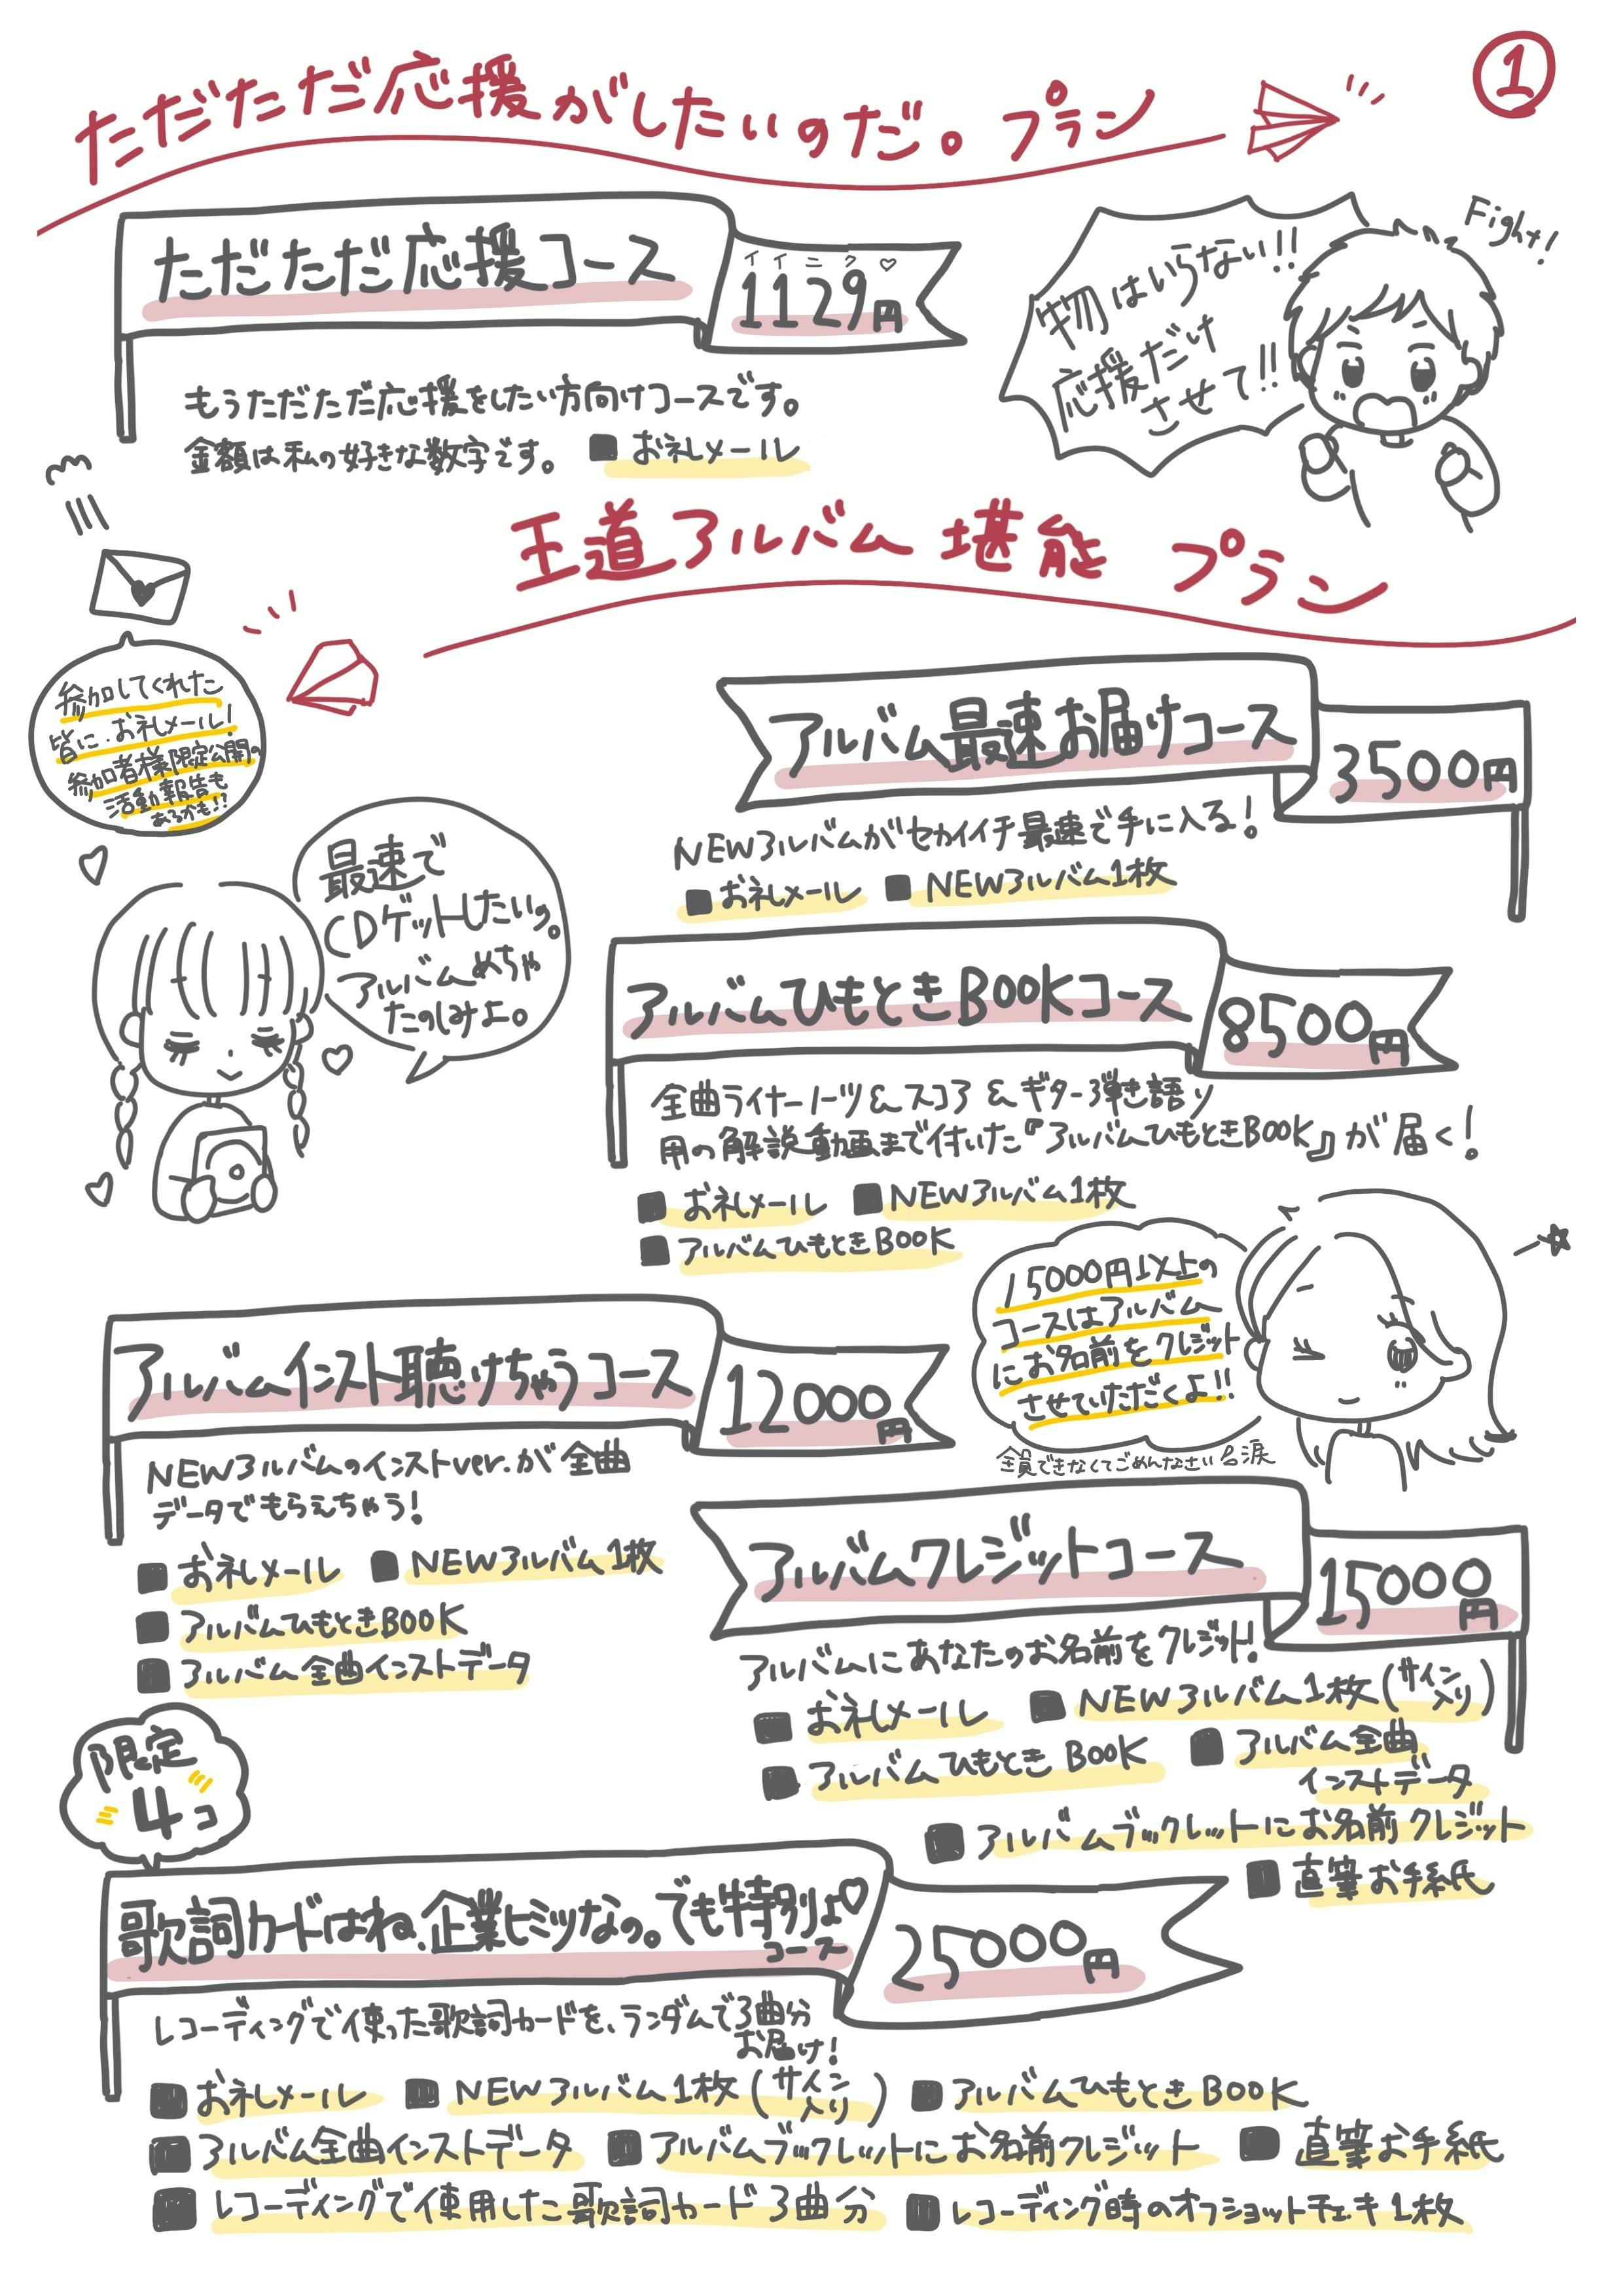 ①
ただただ応援がしたいのだ。プラン
ただただ応援コース
イイニク♡
1129円
もうただただ応援をしたい方向けコースです。
金額は私の好きな数字です。 ■お礼メール
Fight!
物はいらない!!
応援だけ
させて!!
王道アルバム堪能 プラン
参加してくれた
皆に、お礼メール!
参加者様限定公開の
活動報告も
あるかも!?
アルバム最速お届けコース
3500円
NEWアルバムがセカイイチ最速で手に入る!
■お礼メール ■NEWアルバム1枚
最速で
CDゲットしたいの。
アルバムめちゃ
たのしみよ。
アルバムひもときBOOKコース
8500円
全曲ライナーノーツ&スコア&ギター弾き語り
用の解説動画まで付いた『アルバムひもときBOOK』が届く!
■お礼メール ■NEWアルバム1枚
■アルバムひもときBOOK
15000円以上の
コースはアルバム
にお名前をクレジット
させていただくよ!!
全員できなくてごめんなさい
涙
アルバムインスト聴けちゃうコース
12000円
NEWアルバムのインストver.が全曲
データでもらえちゃう!
■お礼メール ■NEWアルバム1枚
■アルバムひもときBOOK
■アルバム全曲インストデータ
アルバムクレジットコース
15000円
アルバムにあなたのお名前をクレジット!
■お礼メール ■NEWアルバム1枚(サイン入り)
■アルバムひもときBOOK ■アルバム全曲
インストデータ
■アルバムブックレットにお名前クレジット
■直筆お手紙
限定
4コ
歌詞カードはね、企業ヒミツなの。でも特別よ♡
コース
25000円
レコーディングで使った歌詞カードを、ランダムで3曲分
お届け!
■お礼メール ■NEWアルバム1枚(サイン入り) ■アルバムひもときBOOK
■アルバム全曲インストデータ ■アルバムブックレットにお名前クレジット ■直筆お手紙
■レコーディングで使用した歌詞カード3曲分 ■レコーディング時のオフショットチェキ1枚